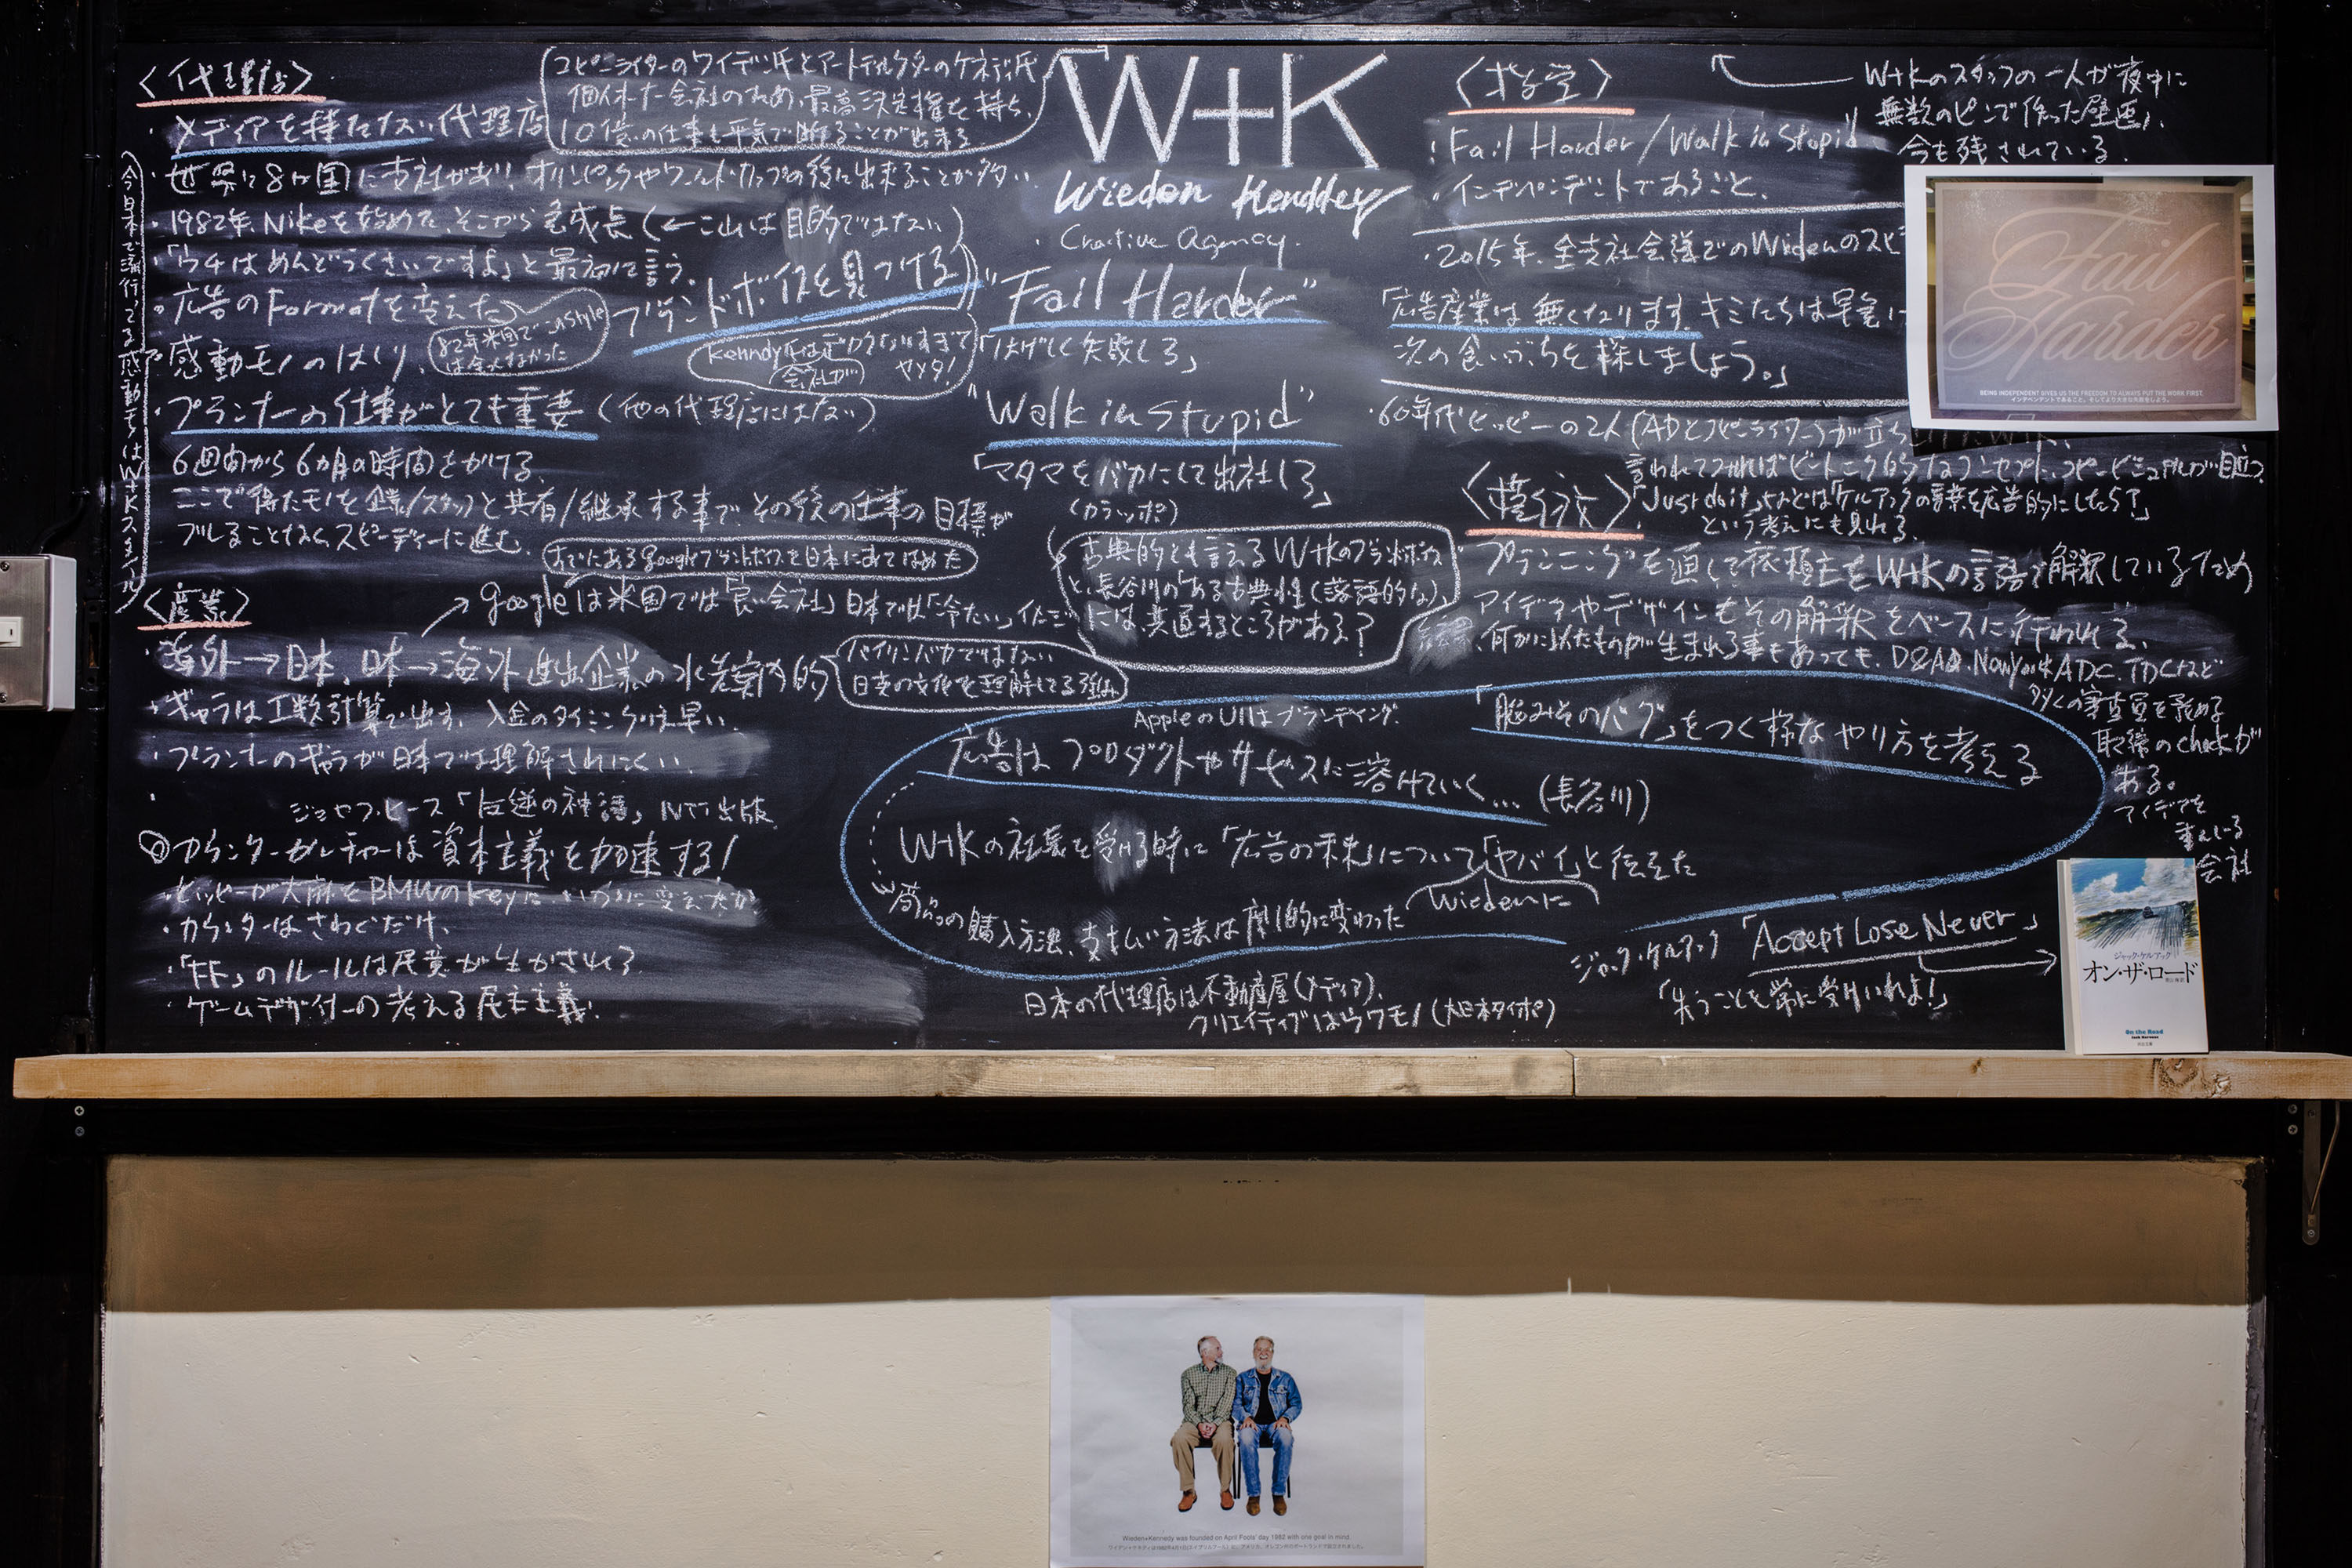 〈代理店〉
・メディアを持たない代理店
コピーライターのワイデン氏とアートディレクターのケネディ氏
個人の会社のため、最高決定権を持ち、
10億の仕事も平気で断ることが出来る
・世界に8ヶ国に支社があり、オリンピックやワールドカップの後に出来ることが多い
・1982年、Nikeを始めて、そこから急成長(←これは目的ではない)
・「ウチはめんどうくさいですよ」と最初に言う。
・広告のFormatを変えた
82年米国でこのstyle
は全くなかった
ブランドボイスを見つける
・感動モノのはしり、
Kenndy氏は
会社が
デカくなりすぎて
ヤメタ!
・プランナーの仕事がとても重要(他の代理店にはない)
6週間から6カ月の時間をかける。
ここで得たモノを企業/スタッフと共有/継承する事で、その後の仕事の目標が
ブレることなく、スピーディーに進む。
今日本で流行ってる感動モノはW+Kスタイル
〈産業〉
すでにあるgoogleブランドボイスを日本にあてはめた
googleは米国では「良い会社」日本では「冷たい」
・海外→日本、日本→海外進出企業の水先案内的
バイリンバカではない
日英の文化を理解してる強み
・ギャラは工数計算で出す。入金のタイミングは早い。
・プランナーのギャラが日本では理解されにくい。
ジョセフ・ヒース「反逆の神話」NTT出版
カウンターカルチャーは資本主義を加速する!
ヒッピーが大麻をBMWのkeyに、いかに変えたか
・カウンターはさわぐだけ、
・「FF」のルールは民意が生かされる
・ゲームデザイナーの考える民主主義!
W+K
Wieden Kenddey
Creative Agency.
"Fail Harder"
「はげしく失敗しろ」
"Walk in Stupid"
「アタマをバカにして出社しろ」
(カラッポ)
古典的とも言えるW+Kのブランドボイス
と、長谷川の「ある古典性(落語的な)」
には、共通するところがある?
〈哲学〉
・Fail Harder/Walk in Stupid
・インデペンデントであること、
・2015年、全支社会議でのWiedenのスピ
「広告産業は無くなります。キミたちは早急に
次の食いぶちを探しましょう。」
・60年代ヒッピーの2人(ADとコピーライター)が立ち
言われてみればビートニク的なコンセプト、コピービジュアルが目立つ
「Just do it」などは「ケルアックの言葉を広告的にしたら?」
という考えにも見れる。
W+Kのスタッフの一人が夜中に
無数のピンで作った壁画、
今も残されている。
Fail
Harder
BEING INDEPENDENT GIVES US THE FREEDOM TO ALWAYS PUT THE WORK FIRST.
インデペンデントであること。そしてより大きな失敗をしよう。
プランニングを通して依頼主をW+Kの言語で解釈しているため
アイデアやデザインもその解釈をベースに行われる。
何かに似たものが生まれる事もあっても、D&AD、NewYorkADC、TDCなど
多くの審査員を務める
取締のcheckが
ある。
アイデアを
重んじる
会社
AppleのUIはブランディング.
広告はプロダクトやサービスに溶けていく…(長谷川)
「脳みそのバグ」をつく様なやり方を考える
W+Kの社長を受ける時に「広告の未来」について「ヤバイ」と伝えた
Wiedenに
商品の購入方法、支払い方法は劇的に変わった
日本の代理店は不動産屋(メディア)、
クリエイティブはウワモノ(大日本タイポ)
ジャック・ケルアック「Accept Lose Never」
「失うことを常に受けいれよ!」
ジャック・ケルアック
オン・ザ・ロード
On the Road
Jack Kerouac
河出文庫
Wieden+Kennedy was founded on April Fools' day 1982 with one goal in mind